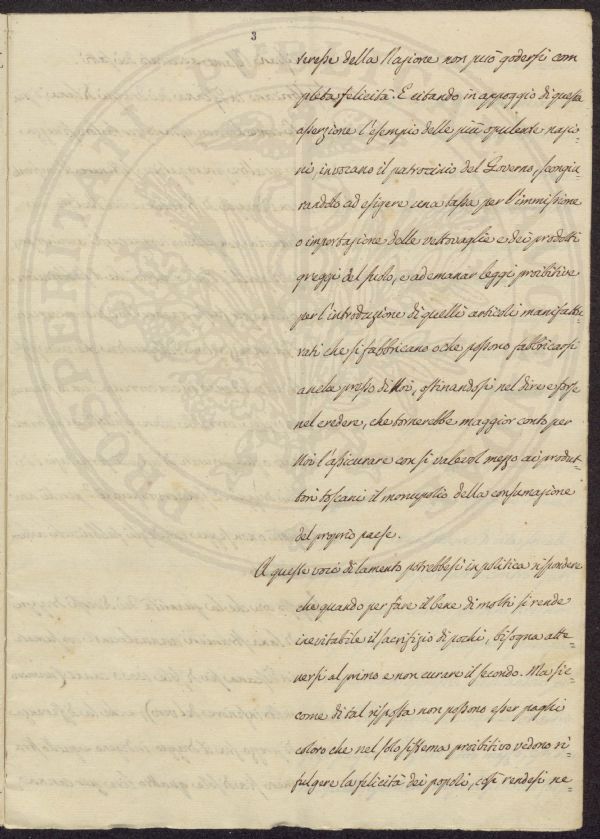 3
teresse della Nazione non può godersi com
pleta felicità. E citando in appoggio di questa
asserzione l'esempio delle più opulente nazio=
ni, invocano il patrocinio del Governo, scongiu=
randolo ad esigere una tassa per l'immissione
o importazione delle vettovaglie e dei prodotti
greggi del suolo, e ad emanar leggi proibitive
per l'introduzione di quelli articoli manifattu=
rati che si fabbricano o che possono fabbricarsi
anche presso di Noi, ostinandosi nel dire e forse
nel credere, che tornerebbe maggior conto per
Noi l'assicurare con sì valevol mezzo ai produt=
tori toscani il monopolio della consumazione
del proprio paese.
A queste voci di lamento potrebbesi in politica rispondere
che quando per fare il bene di molti si rende
inevitabile il sacrifizio di pochi, bisogna atte=
nersi al primo e non curare il secondo. Ma sic=
come di tal risposta non possono esser paghi
coloro che nel solo sistema proibitivo vedono ri=
fulgere la felicità dei popoli, così rendesi ne=
PROSPERITATI PUBLICAE